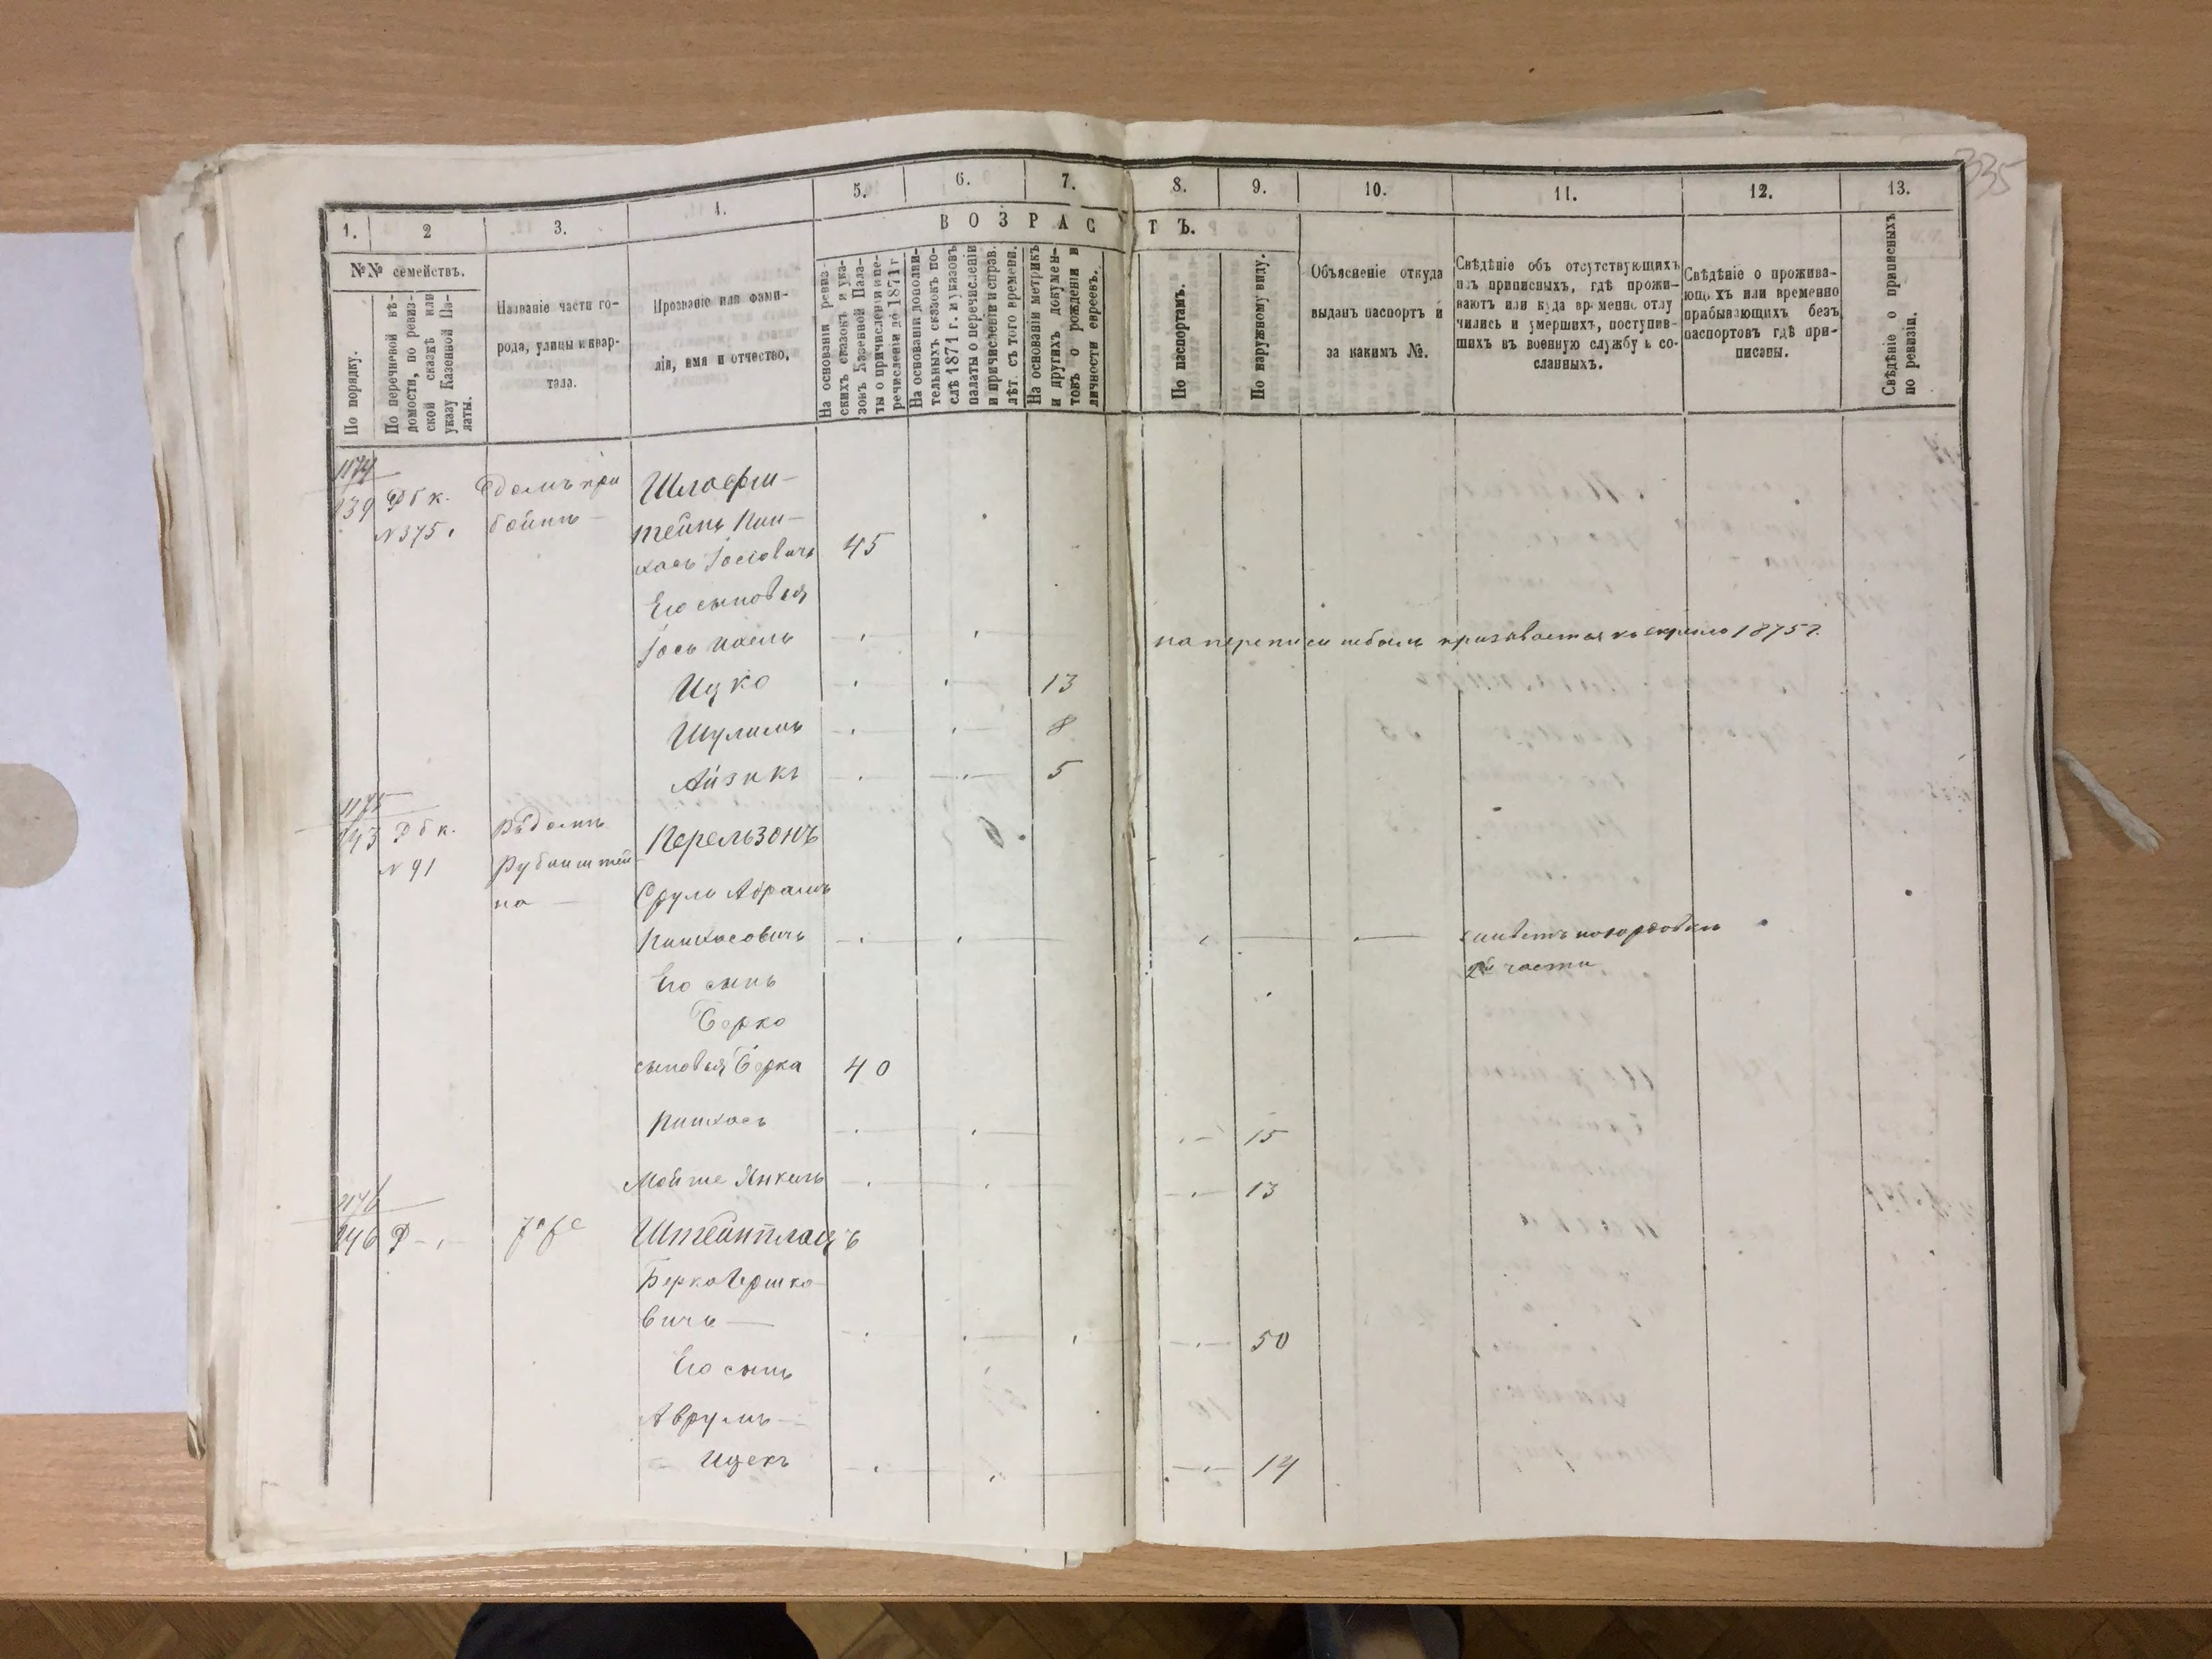 335
1. 2 3. 4. 5. 6. 7. 8. 9. 10. 11. 12. 13.
ВОЗРАСТЪ.
№№ семействъ.
По порядку.
По перечневой вѣ-
домости, по ревиз-
ской сказкѣ или
указу Казенной Па-
латы.
Названіе части го-
рода, улицы и квар-
тала.
Прозваніе или фами-
лія, имя и отчество.
На основаніи ревиз-
скихъ сказокъ и ука-
зовъ Казенной Пала-
ты о причисленіи и пе-
речисленіи до 1871 г
На основаніи дополни-
тельныхъ сказокъ по-
слѣ 1871 г. и указовъ
палаты о перечисленіи
и причисленіи и справ.
лѣт. съ того времени.
На основаніи метрикъ
и другихъ докумен-
товъ о рожденіи и
личности евреевъ.
По паспортамъ.
По наружному виду.
Объясненіе откуда
выданъ паспортъ и
за какимъ №.
Свѣдѣніе объ отсутствующихъ
изъ приписныхъ, гдѣ прожи-
ваютъ или куда временно отлу
чились и умершихъ, поступив-
шихъ въ военную службу и со-
сланныхъ.
Свѣдѣніе о прожива-
ющихъ или временно
прибывающихъ безъ
паспортовъ гдѣ при-
писаны.
Свѣдѣніе о приписныхъ
по ревизіи.
1174
239 Р б к.
№ 375.
бойни
Шлафш-
тейнъ Пин-
хасъ Іосіовичъ 45
Его сыновья
Іось Ихель
на переписи небылъ 1875 г.
Ицко 13
Шулимъ 8
Айзикъ 5
1175
243 Р б к. Въ домѣ Перельзонъ
№ 91 Рубинштей
на Сруль Абрамъ
Пинхасовичъ
2й части
Его сынъ
Берко
сыновья Берка 40
Пинхасъ 15
Мойше Янкель 13
1176
246 Р Штейнплацъ
Берко Гершко
вичъ 50
Его сынъ
Аврумъ
Ицекъ 14